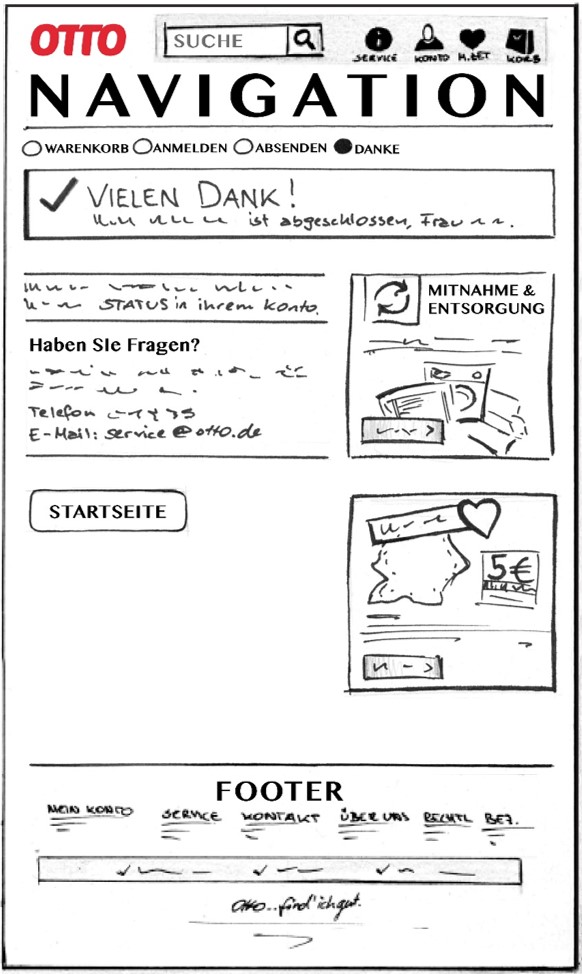 OTTO
SUCHE
SERVICE KONTO M.ZET KORB
NAVIGATION
WARENKORB ANMELDEN ABSENDEN DANKE
VIELEN DANK!
ist abgeschlossen, Frau
STATUS in ihrem Konto.
MITNAHME &
ENTSORGUNG
Haben SIe Fragen?
Telefon
E-Mail: service@otto.de
STARTSEITE
5€
FOOTER
MEIN KONTO SERVICE KONTAKT ÜBER UNS RECHTL BEZ.
Otto... find' ich gut.